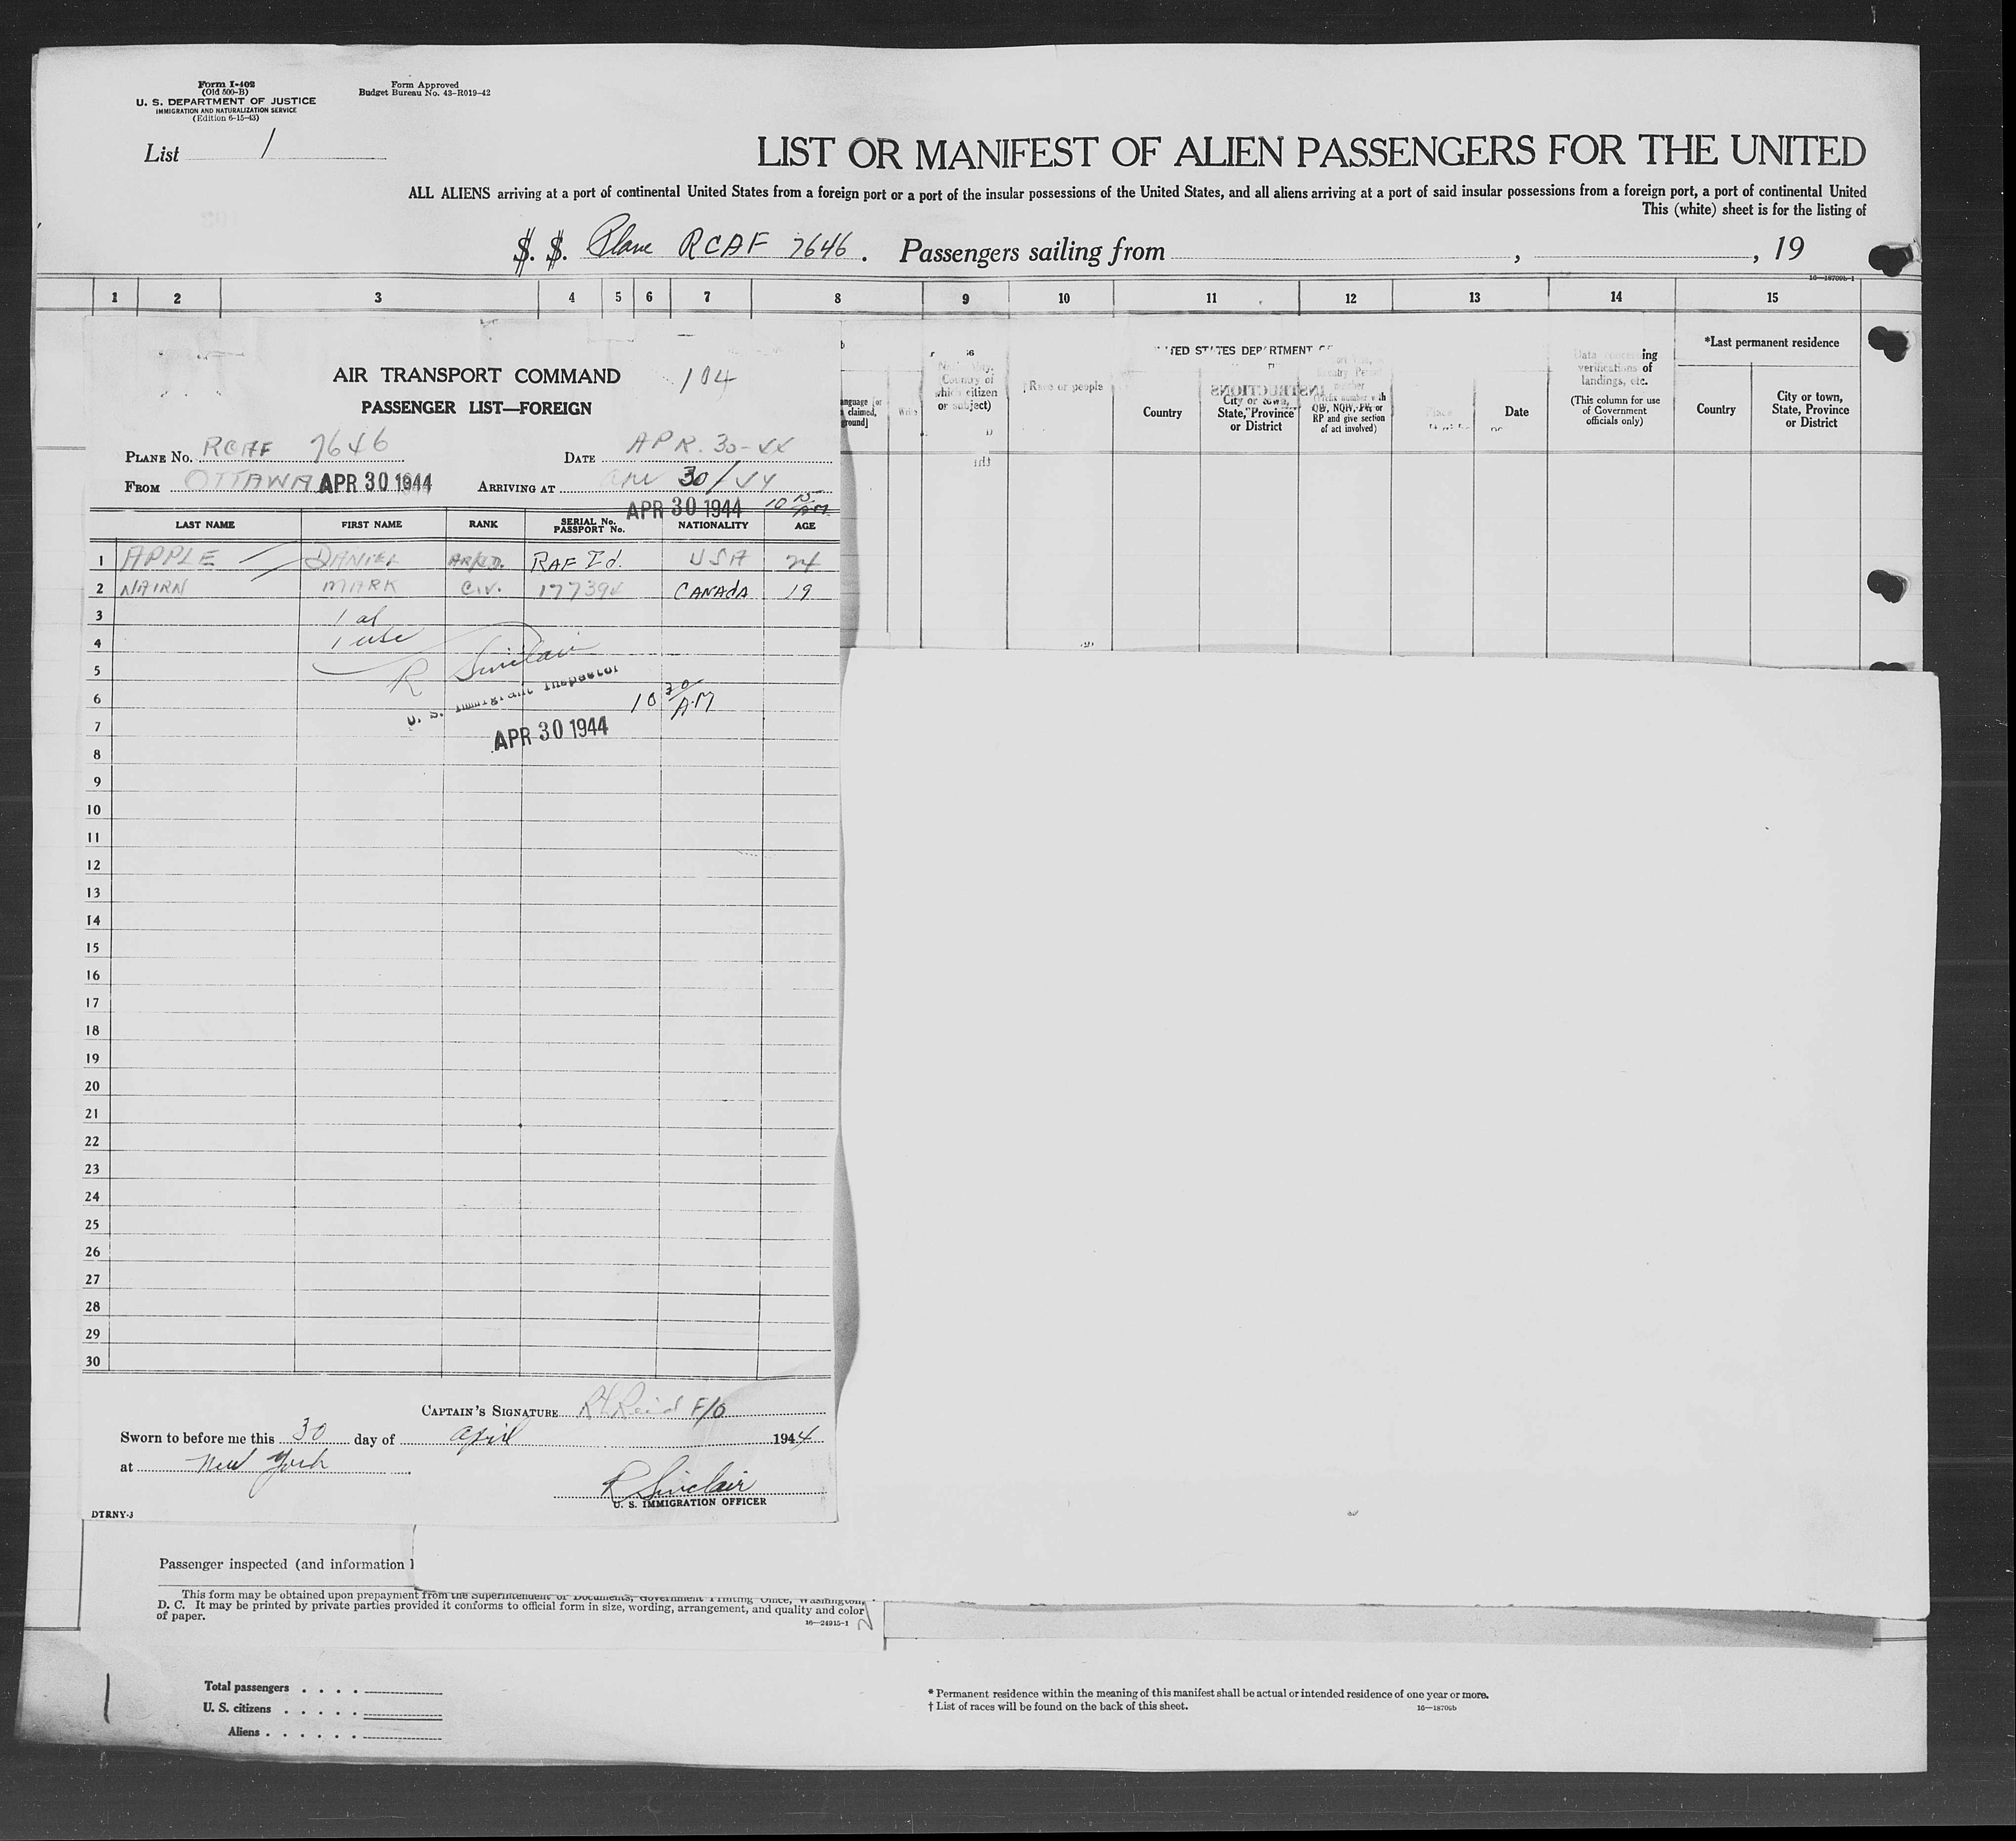 Form I-402
(Old 500-B)
U. S. DEPARTMENT OF JUSTICE
IMMIGRATION AND NATURALIZATION SERVICE
(Edition 6-15-43)
Form Approved
Budget Bureau No. 43-R019-42
List 1
LIST OR MANIFEST OF ALIEN PASSENGERS FOR THE UNITED
ALL ALIENS arriving at a port of continental United States from a foreign port or a port of the insular possessions of the United States, and all aliens arriving at a port of said insular possessions from a foreign port, a port of continental United
This (white) sheet is for the listing of
S. S. Plane RCAF 7646. Passengers sailing from , , 19
16—18709b-1
1 2 3 4 5 6 7 8 9 10 11 12 13 14 15
*Last permanent residence
Country of
which citizen
or subject)
Race or people
Country
City or town,
State, Province
or District
INSTRUCTIONS
number
QIV, NQIV, PV, or
RP and give section
of act involved)
Date
Data concerning
verifications of
landings, etc.
(This column for use
of Government
officials only)
Country
City or town,
State, Province
or District
AIR TRANSPORT COMMAND
104
PASSENGER LIST—FOREIGN
PLANE No. RCAF 7646 DATE APR. 30-44
FROM OTTAWA APR 30 1944 ARRIVING AT 30/44
APR 30 1944 10 15 AM.
LAST NAME FIRST NAME RANK SERIAL No. PASSPORT No. NATIONALITY AGE
1 APPLE DANIEL RAF Id. USA 24
2 NAIRN MARK CIV. 177394 CANADA 19
3 1 al
4 1 usc
5 R Sinclair
6 U. S. Immigrant Inspector 10 30 AM
7 APR 30 1944
8
9
10
11
12
13
14
15
16
17
18
19
20
21
22
23
24
25
26
27
28
29
30
CAPTAIN'S SIGNATURE Reid F/O
Sworn to before me this 30 day of April 1944
at New York
R Sinclair
U. S. IMMIGRATION OFFICER
DTRNY-3
Passenger inspected (and information
This form may be obtained upon prepayment from the Superintendent of Documents, Government Printing Office, Washington,
D. C. It may be printed by private parties provided it conforms to official form in size, wording, arrangement, and quality and color
of paper.
16—24915-1
Total passengers
U. S. citizens
Aliens
* Permanent residence within the meaning of this manifest shall be actual or intended residence of one year or more.
† List of races will be found on the back of this sheet.
16—18709b